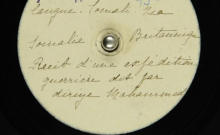 Langue Somali Isa
Somalie Britannique
Récit d'une expédition
guerrière dit par
diriye Mahammed